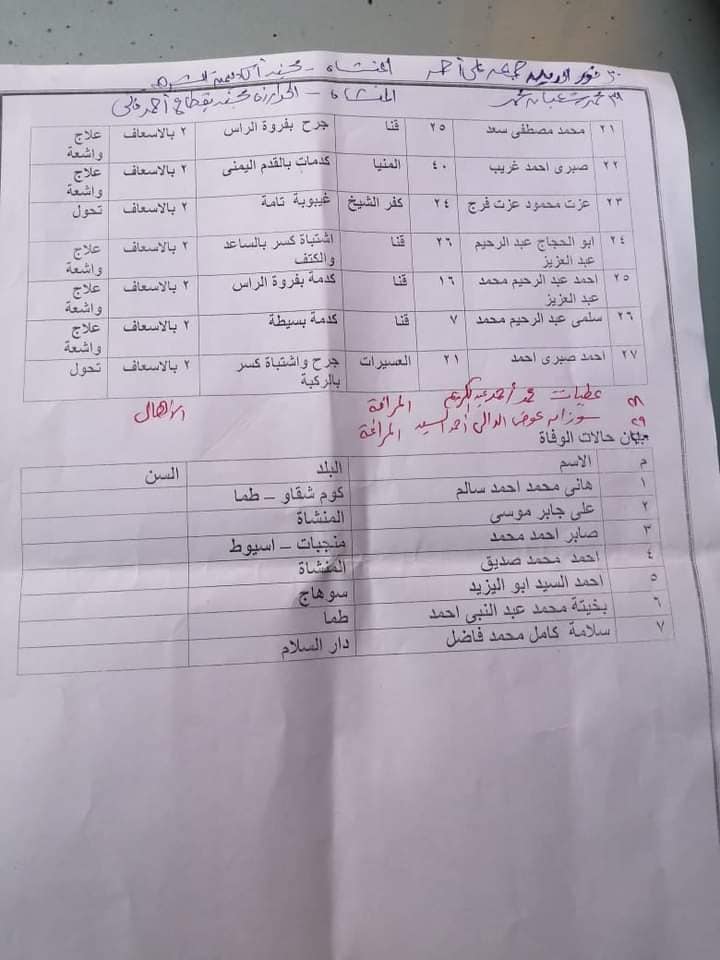 جمعه على أحمد المنشاه -
٣٩ محمد شعبان محمد المنشاه -
٢١ محمد مصطفى سعد ٢٥ قنا جرح بفروة الراس ٢ بالاسعاف علاج واشعة
٢٢ صبرى احمد غريب ٤٠ المنيا كدمات بالقدم اليمنى ٢ بالاسعاف علاج واشعة
٢٣ عزت محمود عزت فرج ٢٤ كفر الشيخ غيبوبة تامة ٢ بالاسعاف تحول
٢٤ ابو الحجاج عبد الرحيم عبد العزيز ٢٦ قنا اشتباة كسر بالساعد والكتف ٢ بالاسعاف علاج واشعة
٢٥ احمد عبد الرحيم محمد عبد العزيز ١٦ قنا كدمة بفروة الراس ٢ بالاسعاف علاج واشعة
٢٦ سلمى عبد الرحيم محمد ٧ قنا كدمة بسيطة ٢ بالاسعاف علاج واشعة
٢٧ احمد صبرى احمد ٢١ العسيرات جرح واشتباة كسر بالركبة ٢ بالاسعاف تحول
٢٨ عطيات محمد أحمد عبد الكريم المراغة الأهالى
٢٩ سوزان عوض أحمد السيد المراغة
بيان حالات الوفاة
م الاسم البلد السن
١ هانى محمد احمد سالم كوم شقاو – طما
٢ على جابر موسى المنشاة
٣ صابر احمد محمد منجبات – اسيوط
٤ احمد محمد صديق المنشاة
٥ احمد السيد ابو اليزيد سوهاج
٦ بخيتة محمد عبد النبى احمد طما
٧ سلامة كامل محمد فاضل دار السلام